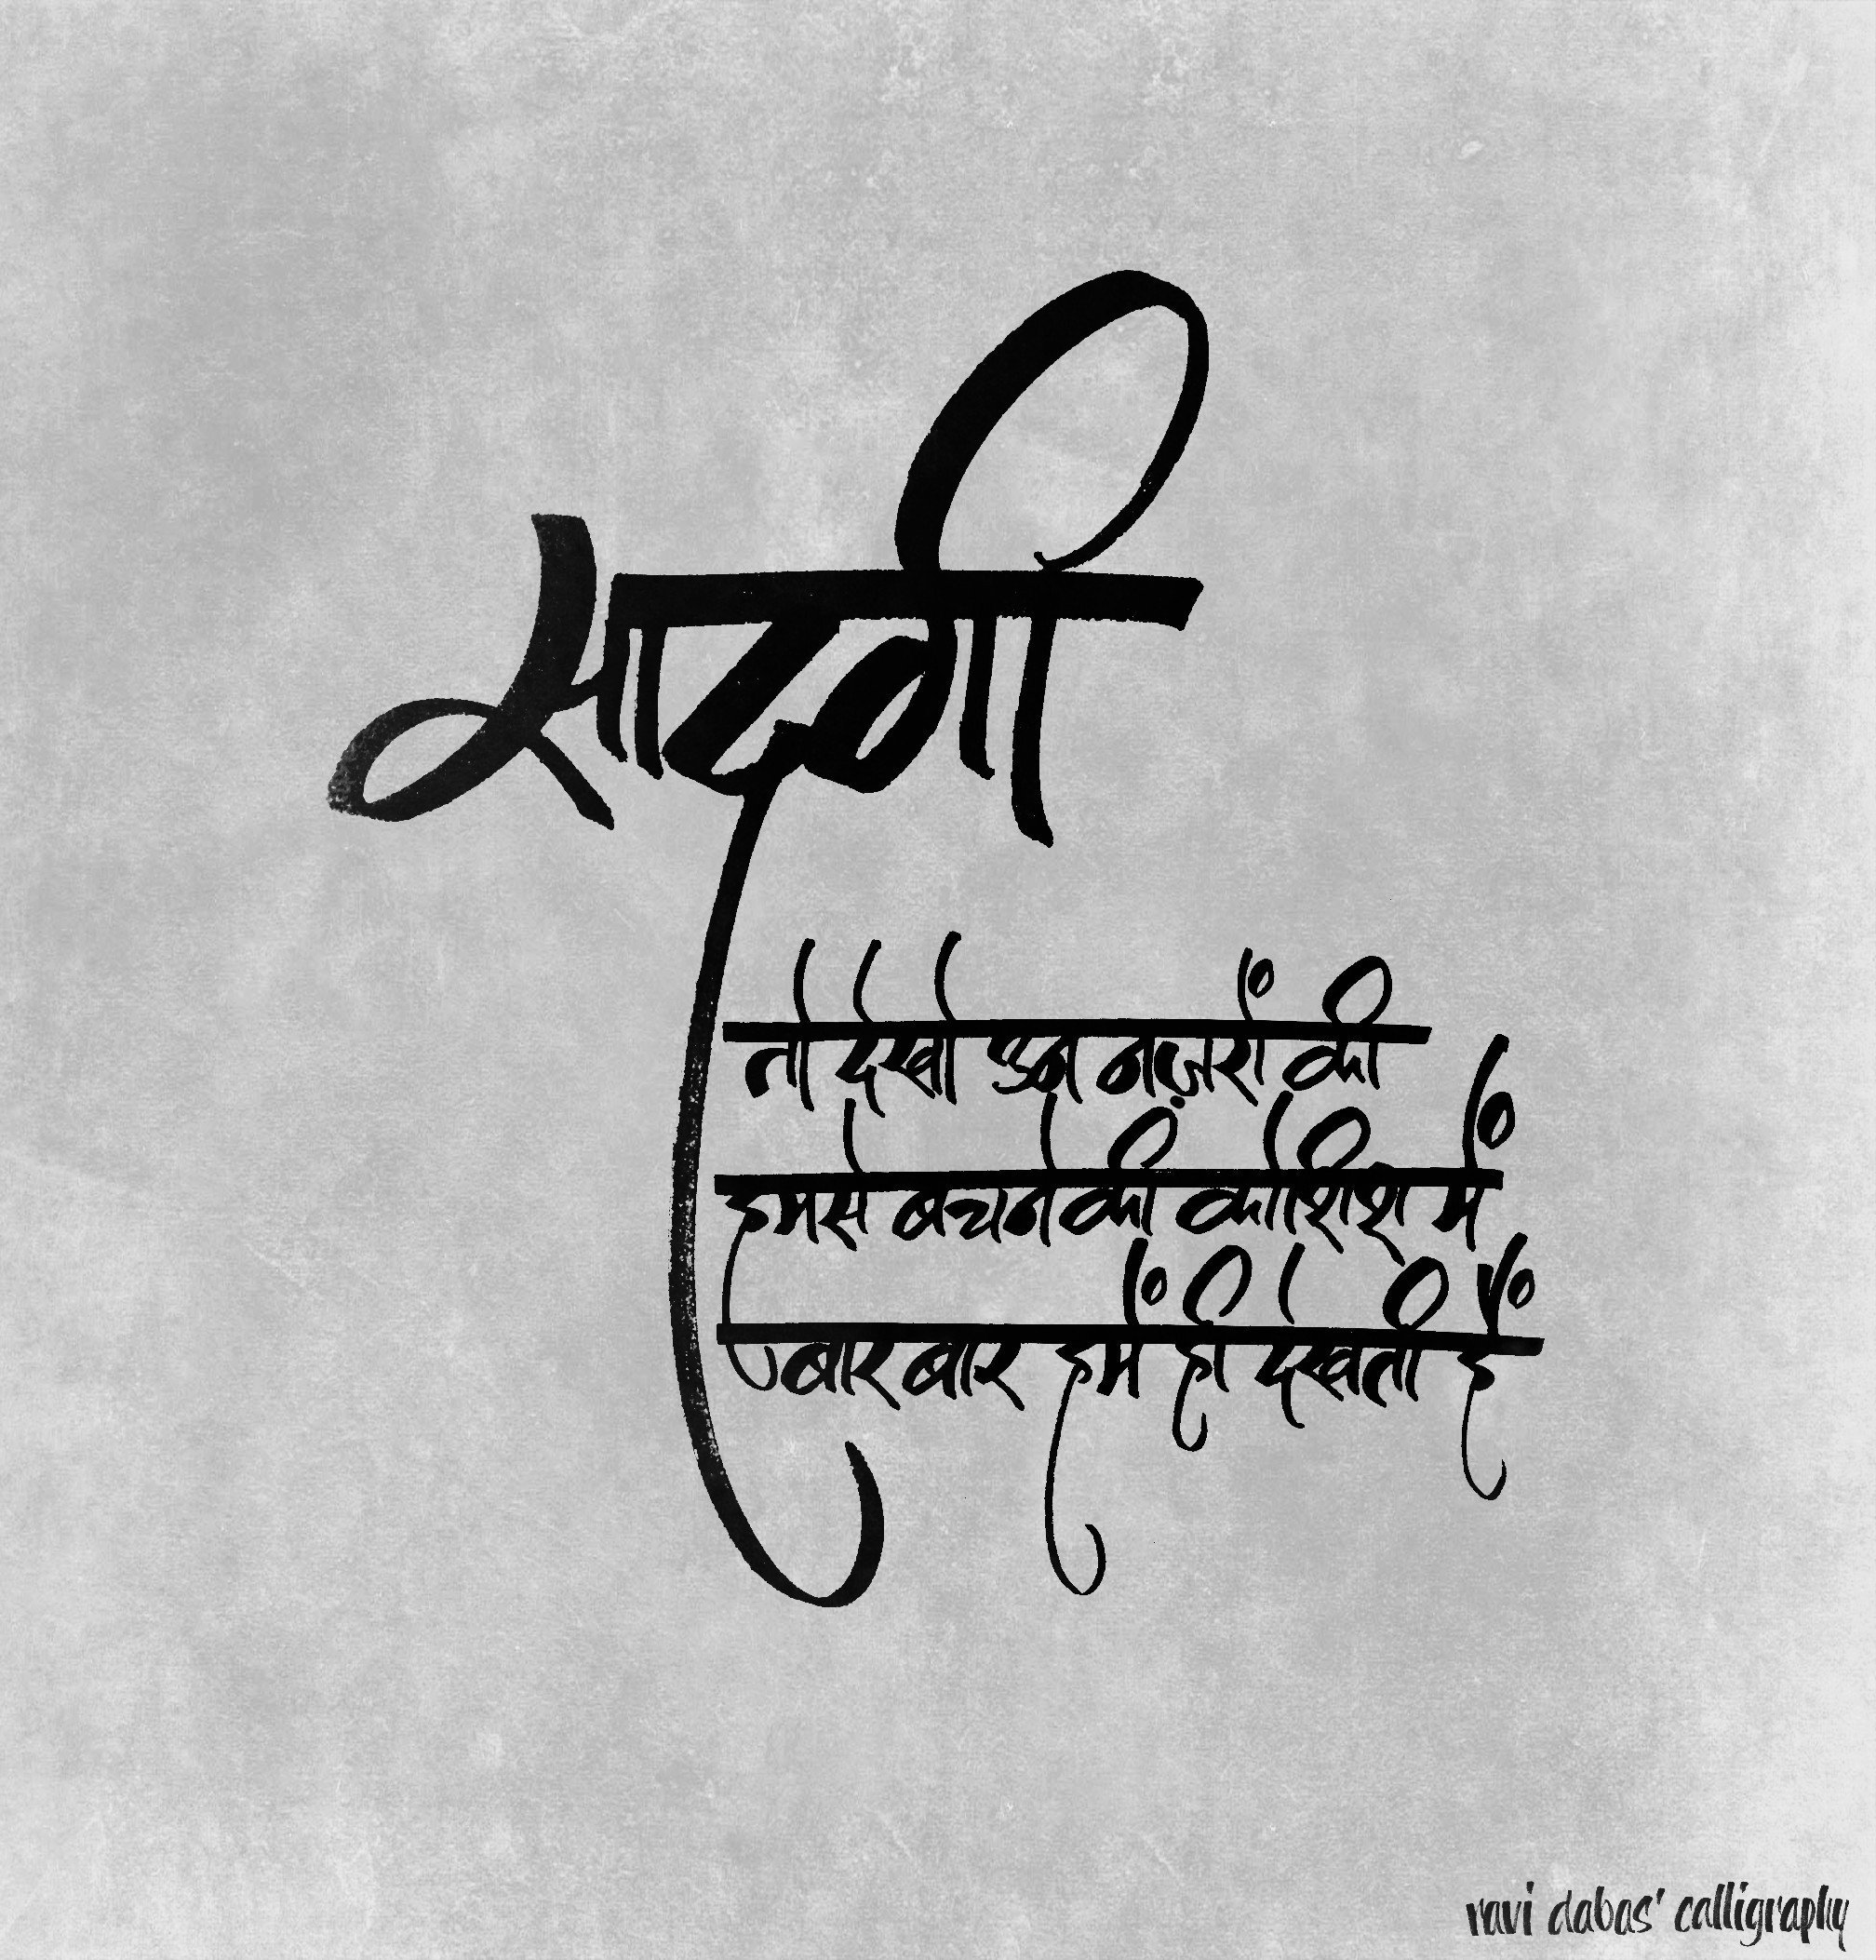 सादगी
तो देखो उन नज़रों की
हमसे बचने की कोशिश में
बार बार हमें ही देखती हैं
ravi dabas' calligraphy